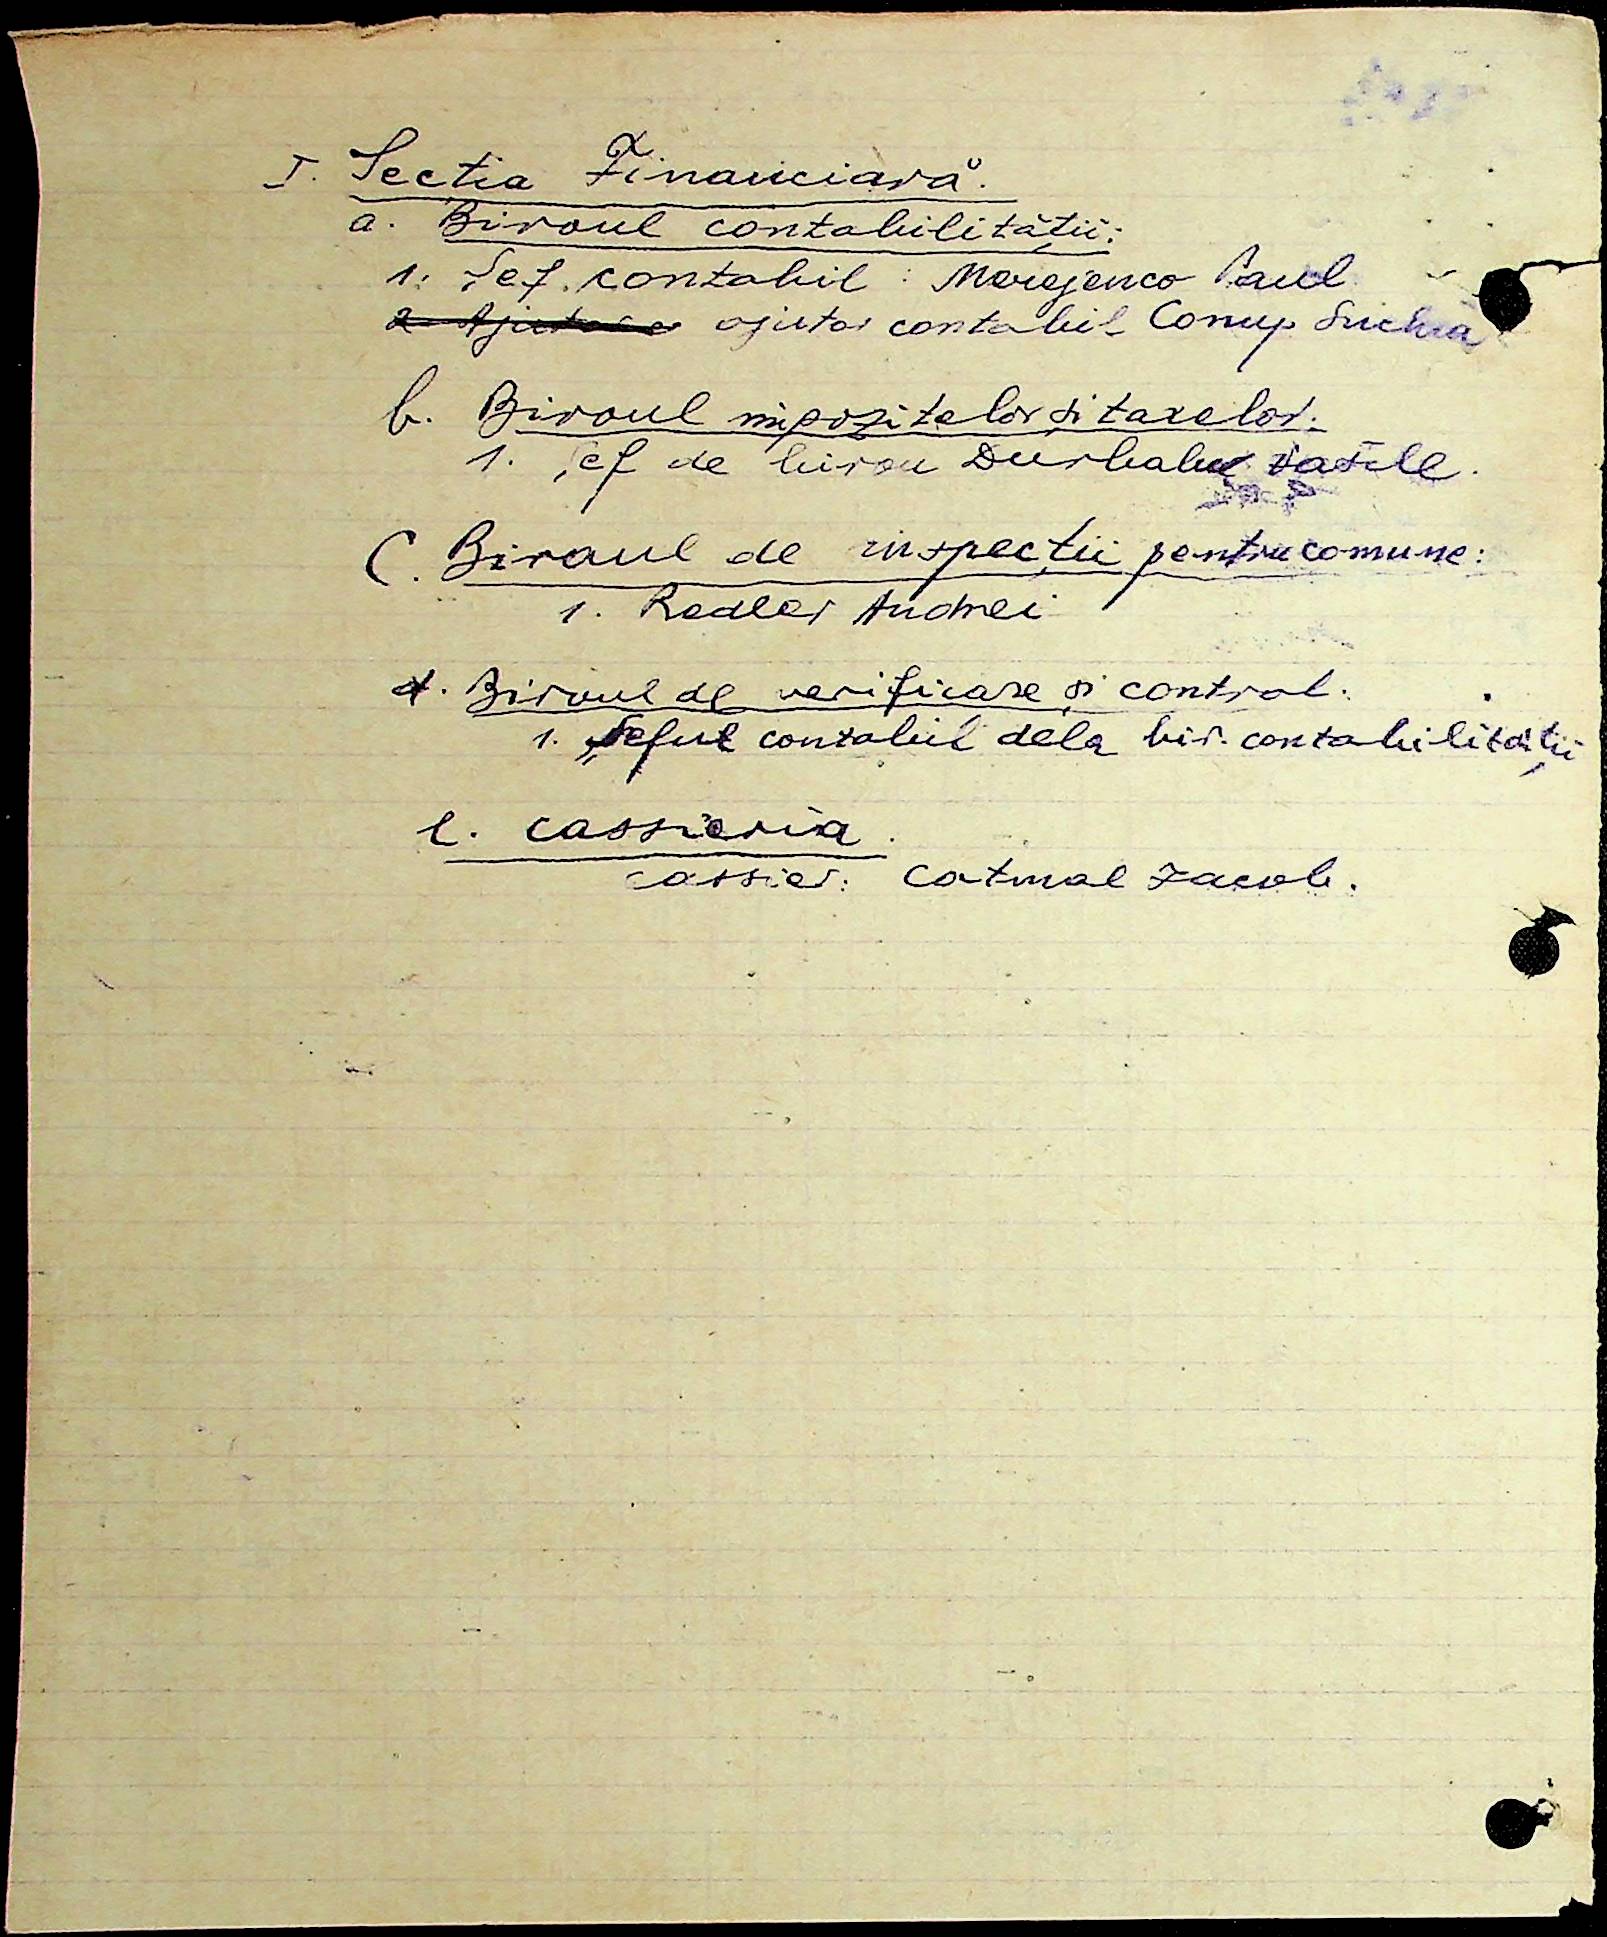 I. Sectia Financiară.
a. Biroul contabilității:
1. Șef contabil: Merejenco Paul
2. Ajutore ajutor contabil
b. Biroul impozitelor și taxelor:
1. Șef de birou Vasile.
C. Biroul de inspecții pentru comune:
1. Redler Andrei
d. Biroul de verificare și control.
1. Șeful contabil dela bir. contabilității
e. Cassieria.
cassier: Catmal Iacob.